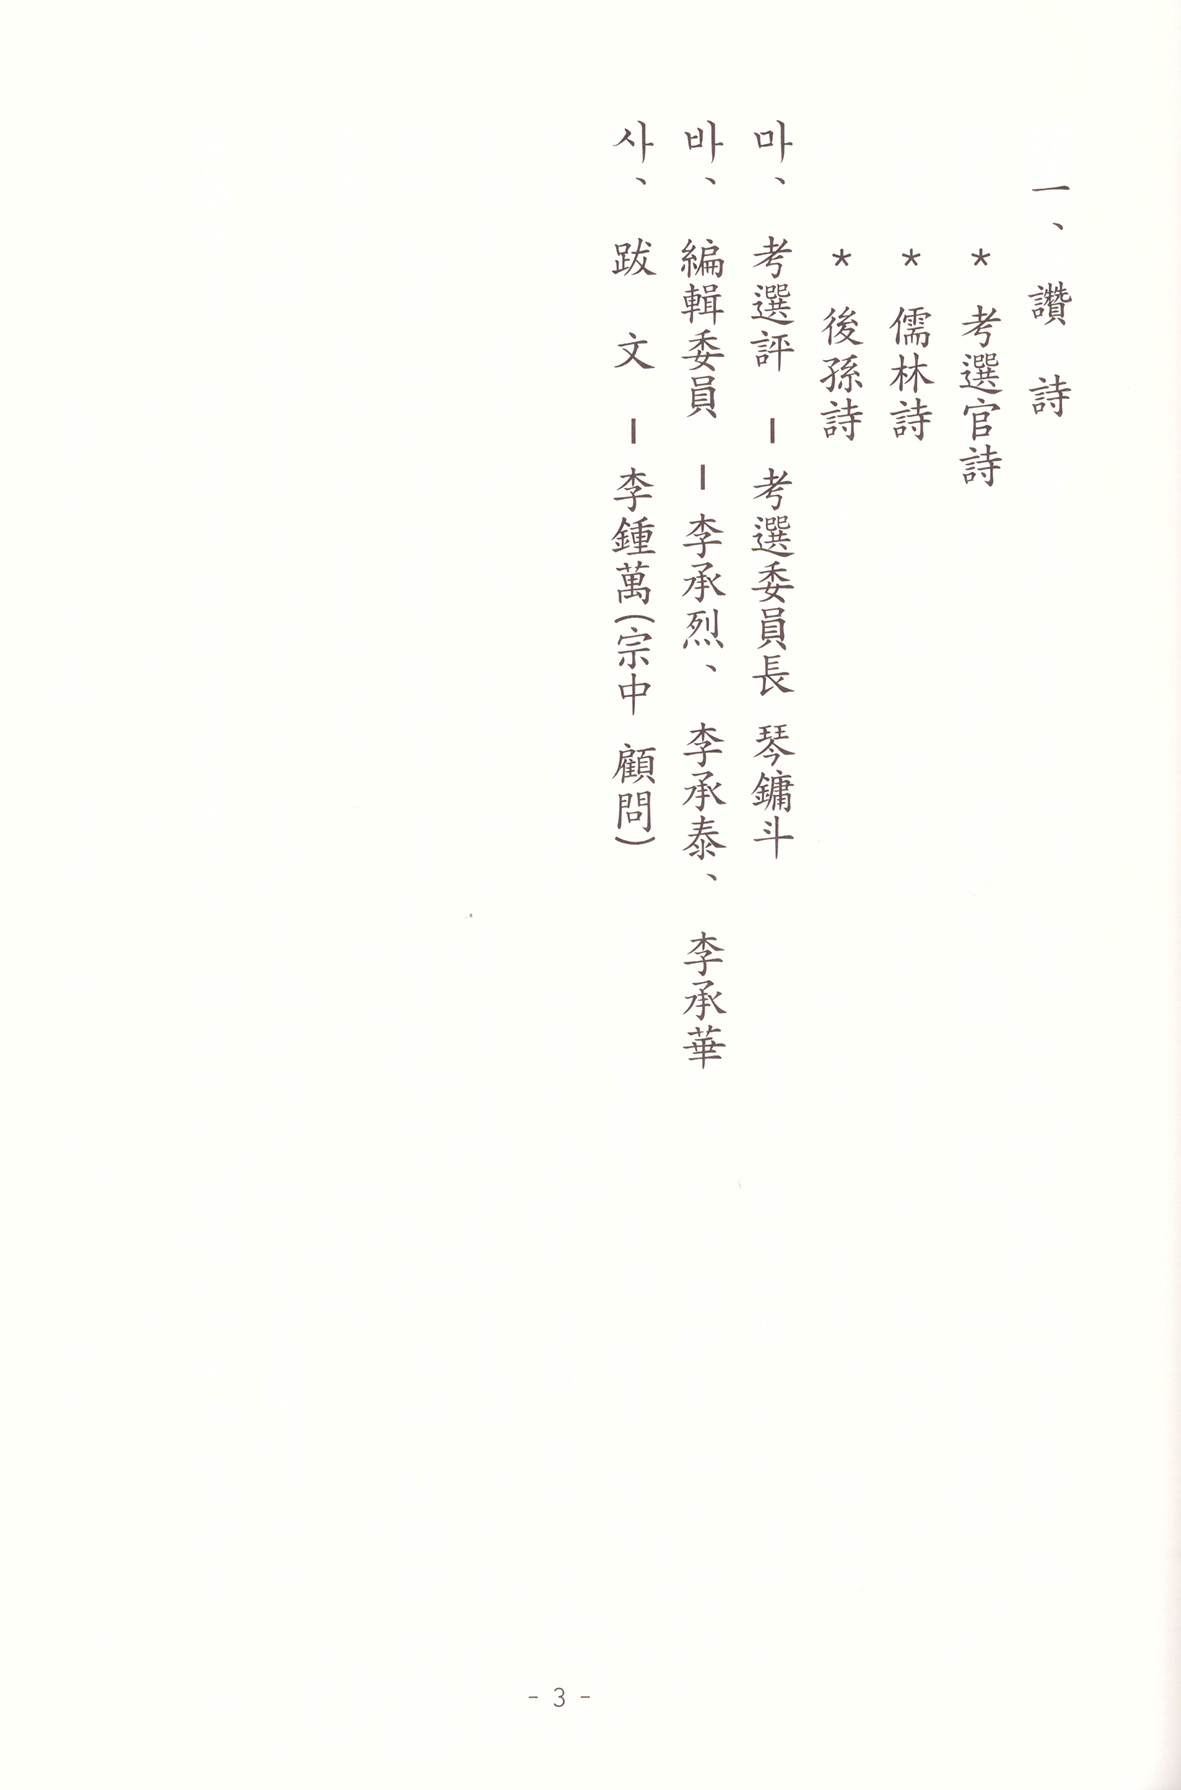 一、 讚 詩
* 考選官詩
* 儒林詩
* 後孫詩
마、 考選評 - 考選委員長 琴鏞斗
바、 編輯委員 - 李承烈、 李承泰、 李承華
사、 跋 文 - 李鍾萬(宗中 顧問)
- 3 -